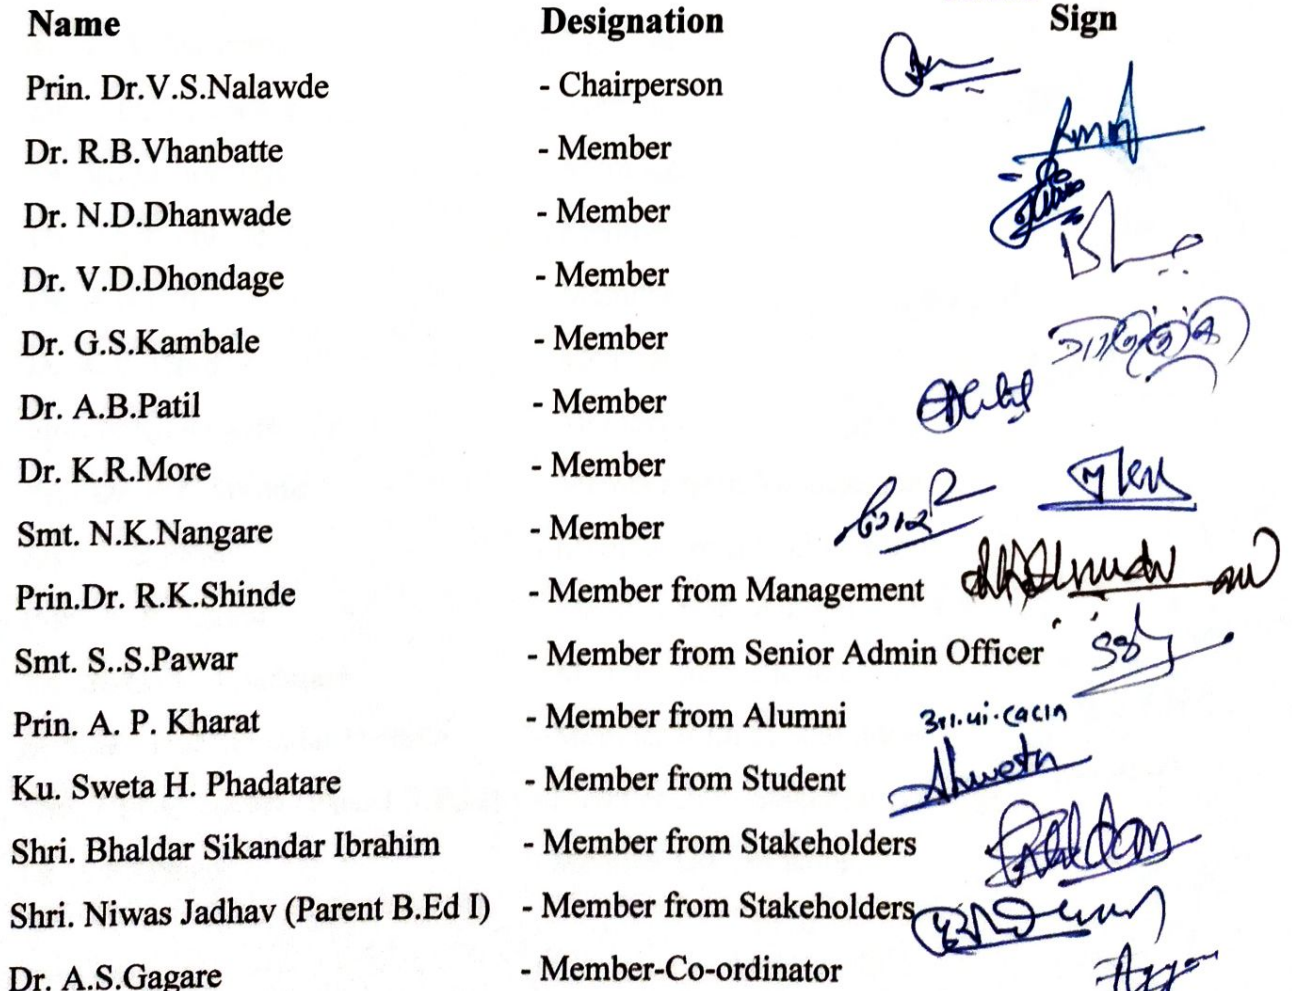 Name Designation Sign
Prin. Dr.V.S.Nalawde - Chairperson
Dr. R.B.Vhanbatte - Member
Dr. N.D.Dhanwade - Member
Dr. V.D.Dhondage - Member
Dr. G.S.Kambale - Member
Dr. A.B.Patil - Member
Dr. K.R.More - Member
Smt. N.K.Nangare - Member
Prin.Dr. R.K.Shinde - Member from Management
Smt. S..S.Pawar - Member from Senior Admin Officer
Prin. A. P. Kharat - Member from Alumni
Ku. Sweta H. Phadatare - Member from Student
Shri. Bhaldar Sikandar Ibrahim - Member from Stakeholders
Shri. Niwas Jadhav (Parent B.Ed I) - Member from Stakeholders
Dr. A.S.Gagare - Member-Co-ordinator